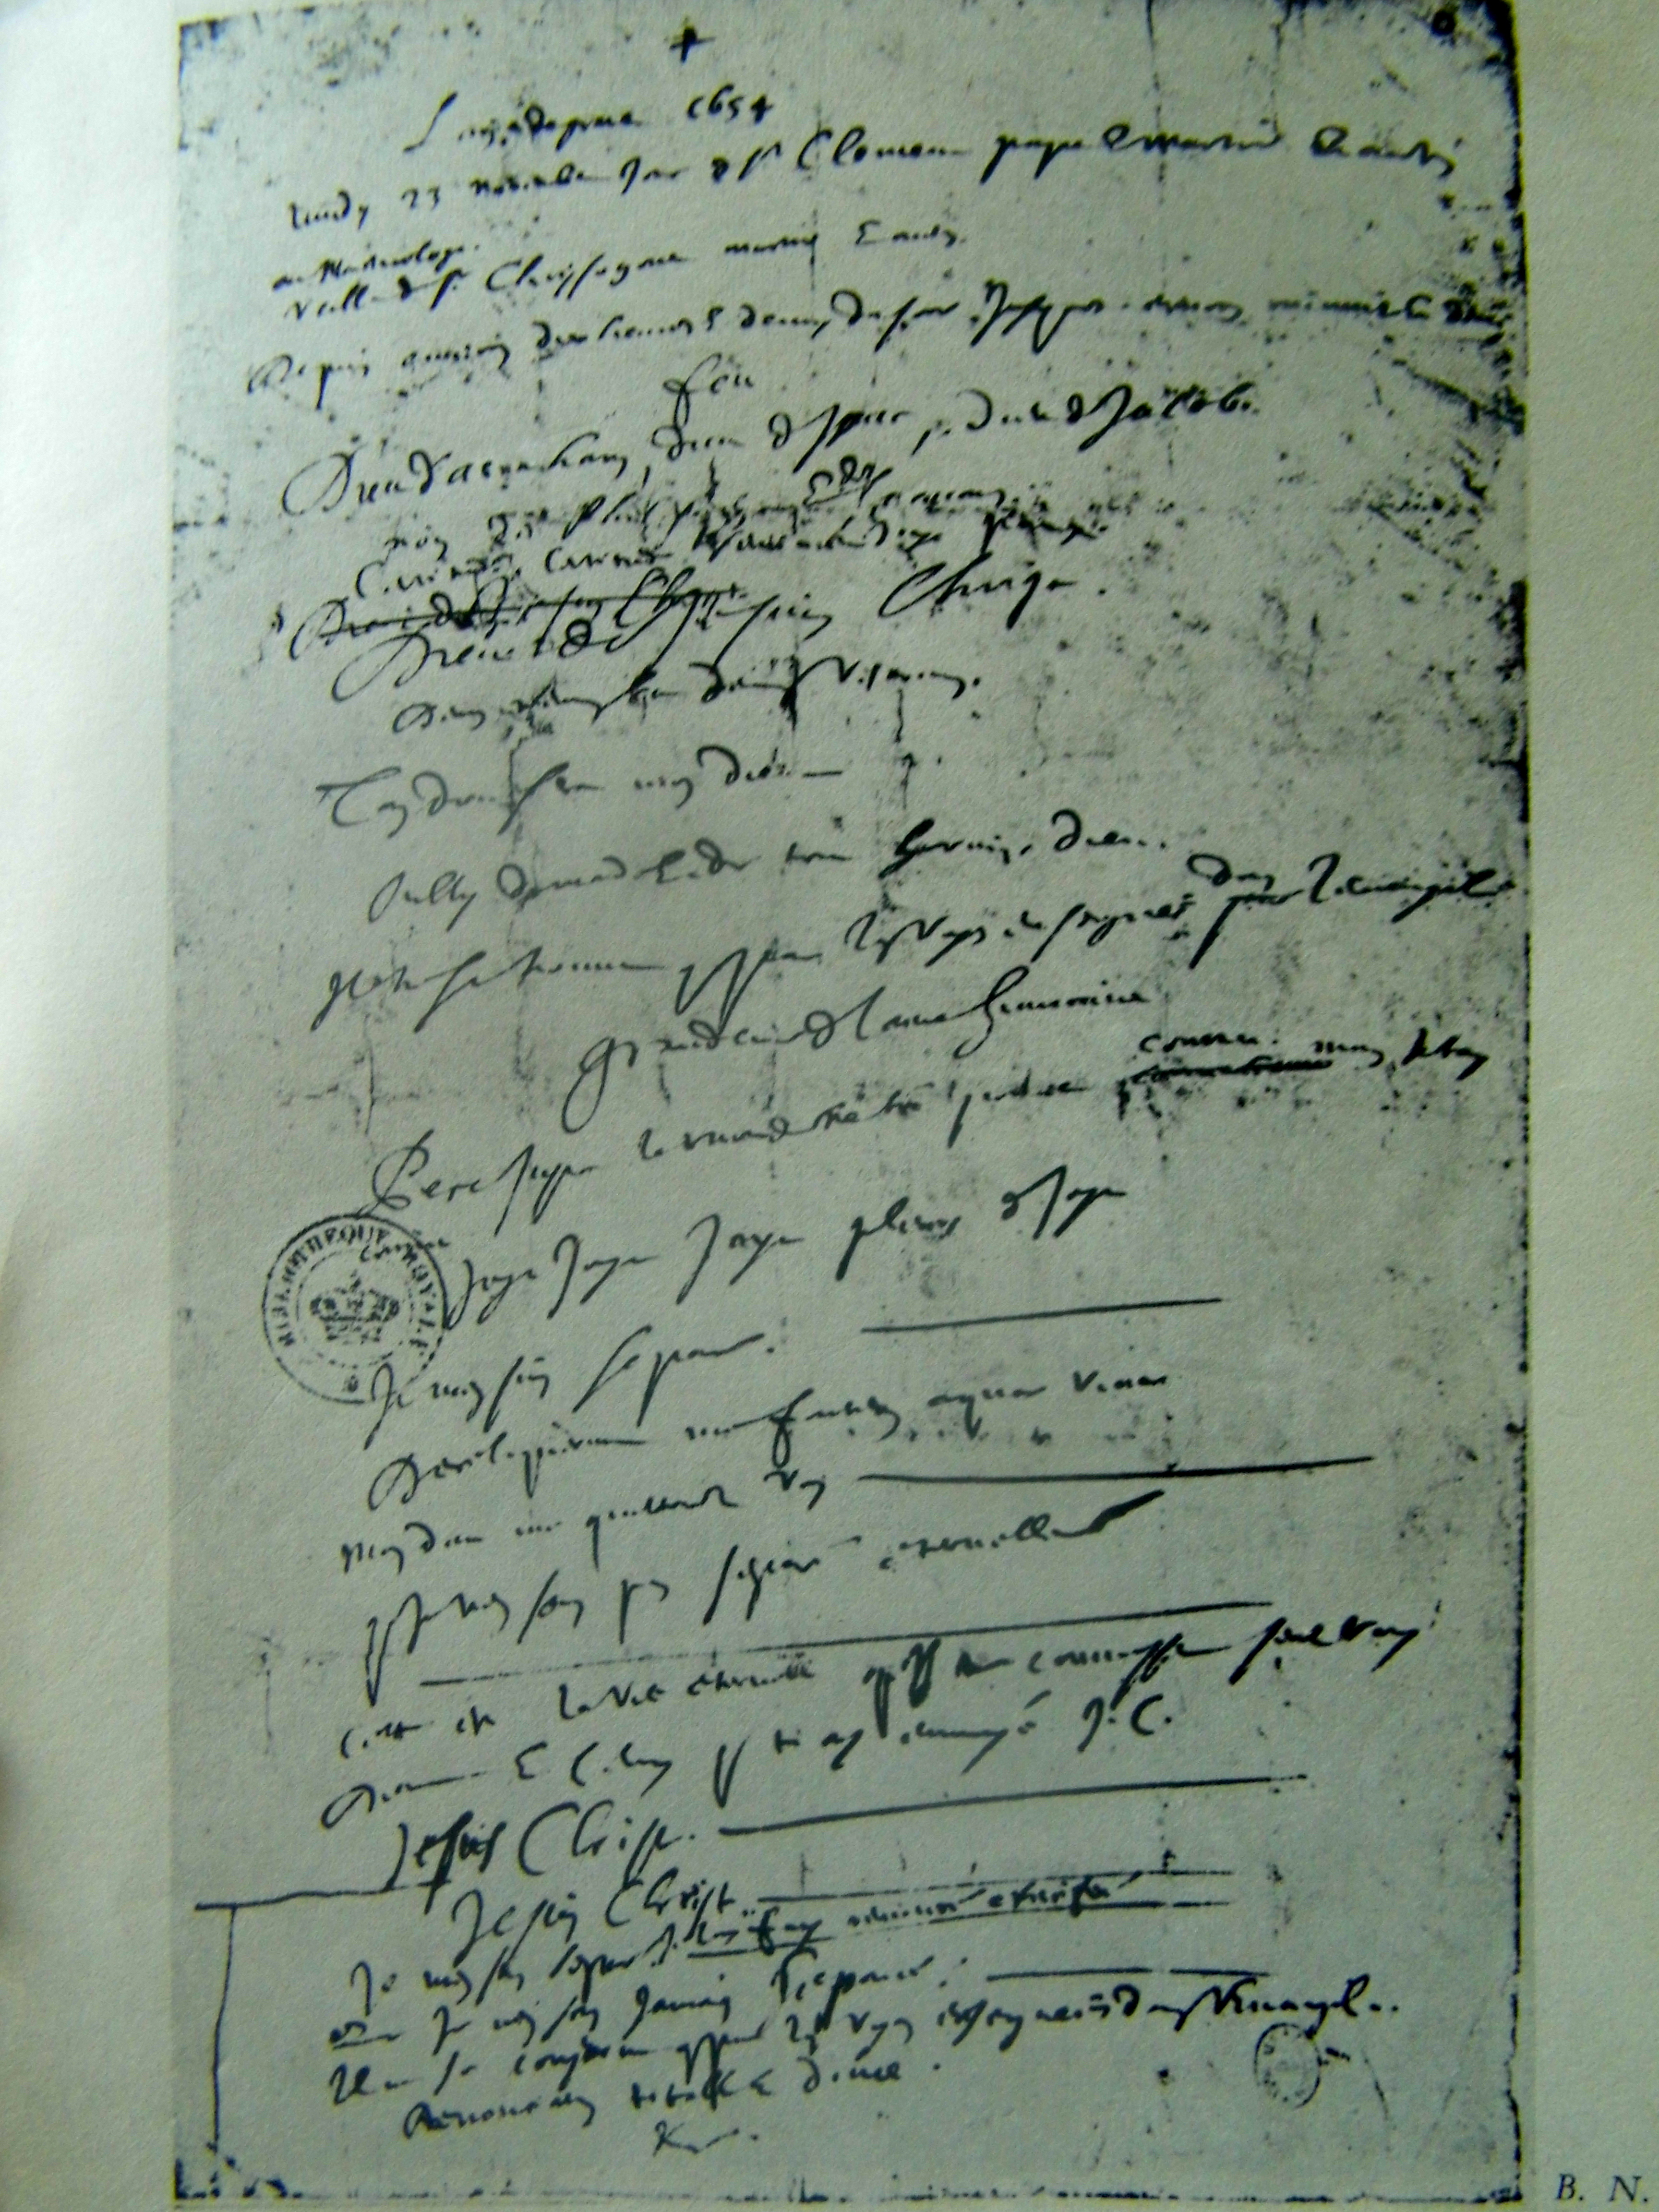 +
L'an de grace 1654
Lundy 23 novembre jour de St Clement pape et martir et autres
au Martirologe
veille de St Chrysogone martir et autres
Depuis environ dix heures et demy du soir jusques environ minuit et demy
feu
Dieu d'Abraham, Dieu d'Isaac, Dieu de Jacob.
non des Philosophes et des sçavans
Certitude, certitude
Dieu de Jesus Christ
Dieu de Jesus Christ.
Deum meum et Deum vestrum.
Ton Dieu sera mon Dieu
oubly du monde et de tout hormis Dieu.
dans
Il ne se trouve que par les voyes enseignées par l'Evangile
grandeur de l'ame humaine
connu. mais je t'ay
Pere juste le monde ne t'a point connu
connu
Joye Joye Joye pleurs de Joye
Je m'en suis separé.
Dereliquerunt me fontem aquae vivae
mon Dieu me quitterez vous
que je n'en sois pas separé eternellement
Cette est la vie eternelle qu'ils te connoissent seul vray
Dieu et celuy que tu as envoyé J. C.
Jesus Christ.
Jesus Christ
Je m'en suis separé. je l'ay fuy renoncé crucifié
que je n'en sois jamais separé.
Il ne se conserve que par les voyes enseignées dans l'Evangile.
Renonciation totale et douce.
BIBLIOTHEQUE ROYALE
B. N.